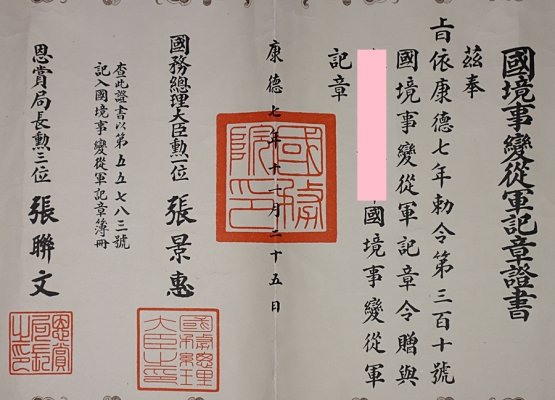 國境事變從軍記章證書
茲奉
上旨依康德七年勅令第三百十號
國境事變從軍記章令贈與
國境事變從軍
記章
康德七年十一月二十五日
國務院印
國務總理大臣勲一位 張景惠
國務總理大臣之印
查此證書以第五五七八三號
記入國境事變從軍記章簿冊
恩賞局長勲三位 張聯文
恩賞局長之印